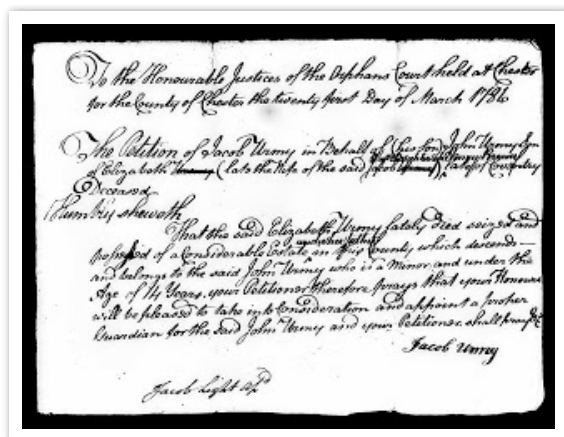 To the Honourable Justices of the Orphans Court held at Chester
for the County of Chester the twenty first Day of March 1786
The Petition of Jacob Urmy in Behalf of his Son John Urmy
of Elizabeth (late the Wife of the said Jacob) late of Coventry
Deceased
Humbly sheweth
That the said Elizabeth Urmy lately died seized and
possessed of a Considerable Estate in this County which descends
and belongs to the said John Urmy who is a Minor and under the
Age of 14 Years, your Petitioner therefore prays that your Honours
will be pleased to take into Consideration and appoint a proper
Guardian for the said John Urmy and your Petitioner shall pray &c
Jacob Urmy
Jacob Light apd